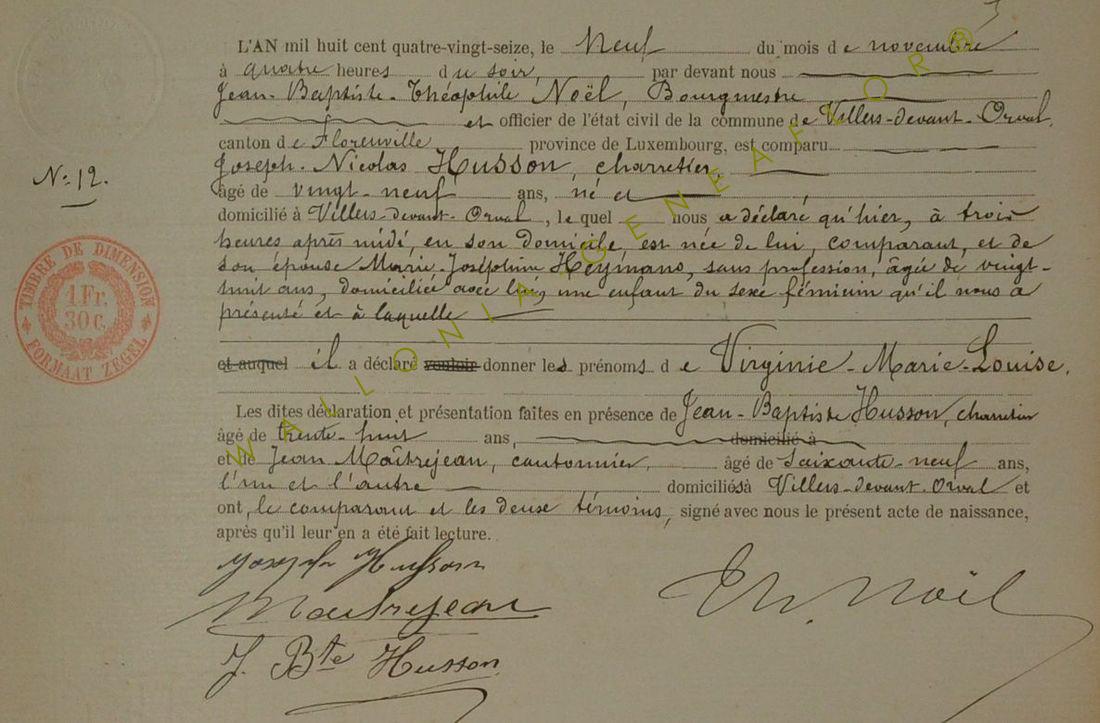 3
L'AN mil huit cent quatre-vingt-seize, le Neuf du mois de novembre
à quatre heures du soir, par devant nous
Jean-Baptiste-Théophile Noël, Bourgmestre
et officier de l'état civil de la commune de Villers-devant-Orval,
canton de Florenville province de Luxembourg, est comparu
Joseph-Nicolas Husson, charretier,
N° 12.
âgé de vingt-neuf ans, né et
domicilié à Villers-devant-Orval, le quel nous a déclaré qu'hier, à trois
heures après midi, en son domicile, est née de lui, comparant, et de
son épouse Marie-Joséphine Heymans, sans profession, âgée de vingt-
huit ans, domiciliée avec lui, une enfant du sexe féminin qu'il nous a
présenté et à laquelle
TIMBRE DE DIMENSION
1 Fr.
30 C.
FORMAAT ZEGEL
et auquel il a déclaré vouloir donner les prénoms de Virginie-Marie-Louise.
Les dites déclaration et présentation faites en présence de Jean-Baptiste Husson, charretier
âgé de trente-huit ans, domicilié à
et de Jean Maîtrejean, cantonnier, âgé de Soixante-neuf ans,
l'un et l'autre domiciliés à Villers-devant-Orval et
ont, le comparant et les deux témoins, signé avec nous le présent acte de naissance,
après qu'il leur en a été fait lecture.
Joseph Husson
Maitrejean
J. Bte Husson
Th. Noël
WALLONIA GENEAFLOR®